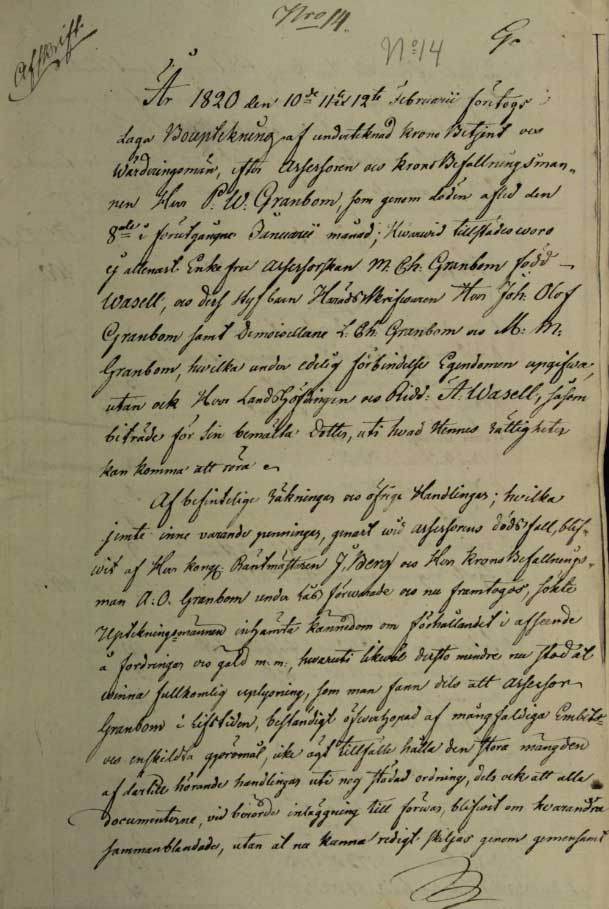 Nro 14.
N:o 14
Afskrift.
År 1820 den 10de 11te & 12te Februarii företogs
Laga Bouptekning af undertecknad Krono Betjent och
Wärderingsmän, efter Assessoren och KronoBefallningsman-
nen Herr P. W. Granbom, som genom döden afled den
8de i förutgångne Januarii månad; Hvarwid tillstädes woro
ej allenast Enkefru Assessorskan M. Ch. Granbom född
Wasell, och dess styfbarn Häradsskrifwaren Herr Joh: Olof
Granbom samt Demoisellene L: Ch: Granbom och M: M:
Granbom, hwilka under edelig förbindelse Egendomen uppgifwa,
utan ock Herr Landshöfdingen och Ridd: A. Wasell, såsom
biträde för sin bemälta Dotter, uti hvad Hennes rättigheter
kan komma att röra.
Af befintelige räkningar och öfrige Handlingar; hwilka
jemte inne varande penningar, genast wid Assessorens dödsfall, blif-
wit af Herr Räntmästaren J. Berg och Herr Krono Befallnings-
man A. O. Granbom under Lås förwarade och nu framtogos, sökte
Upteknings männen inhämta kännedom om förhållandet i afseende
å fordringar och gäld m. m., hwaruti likwäl desto mindre nu stod at
winna fullkomlig uplysning, som man fann dels att Assessor
Granbom i Lifstiden, beständigt öfwerhopad af mångfaldiga Embets-
och enskildta göromål, icke ägt tillfälle hålla den stora mängden
af dertill hörande handlingar uti nog städad ordning, dels ock att alla
documenterne, vid berörde inläggning till förwar, blifwit om hvarandra
sammanblandade, utan at nu kunna redigt skiljas genom gemensamt